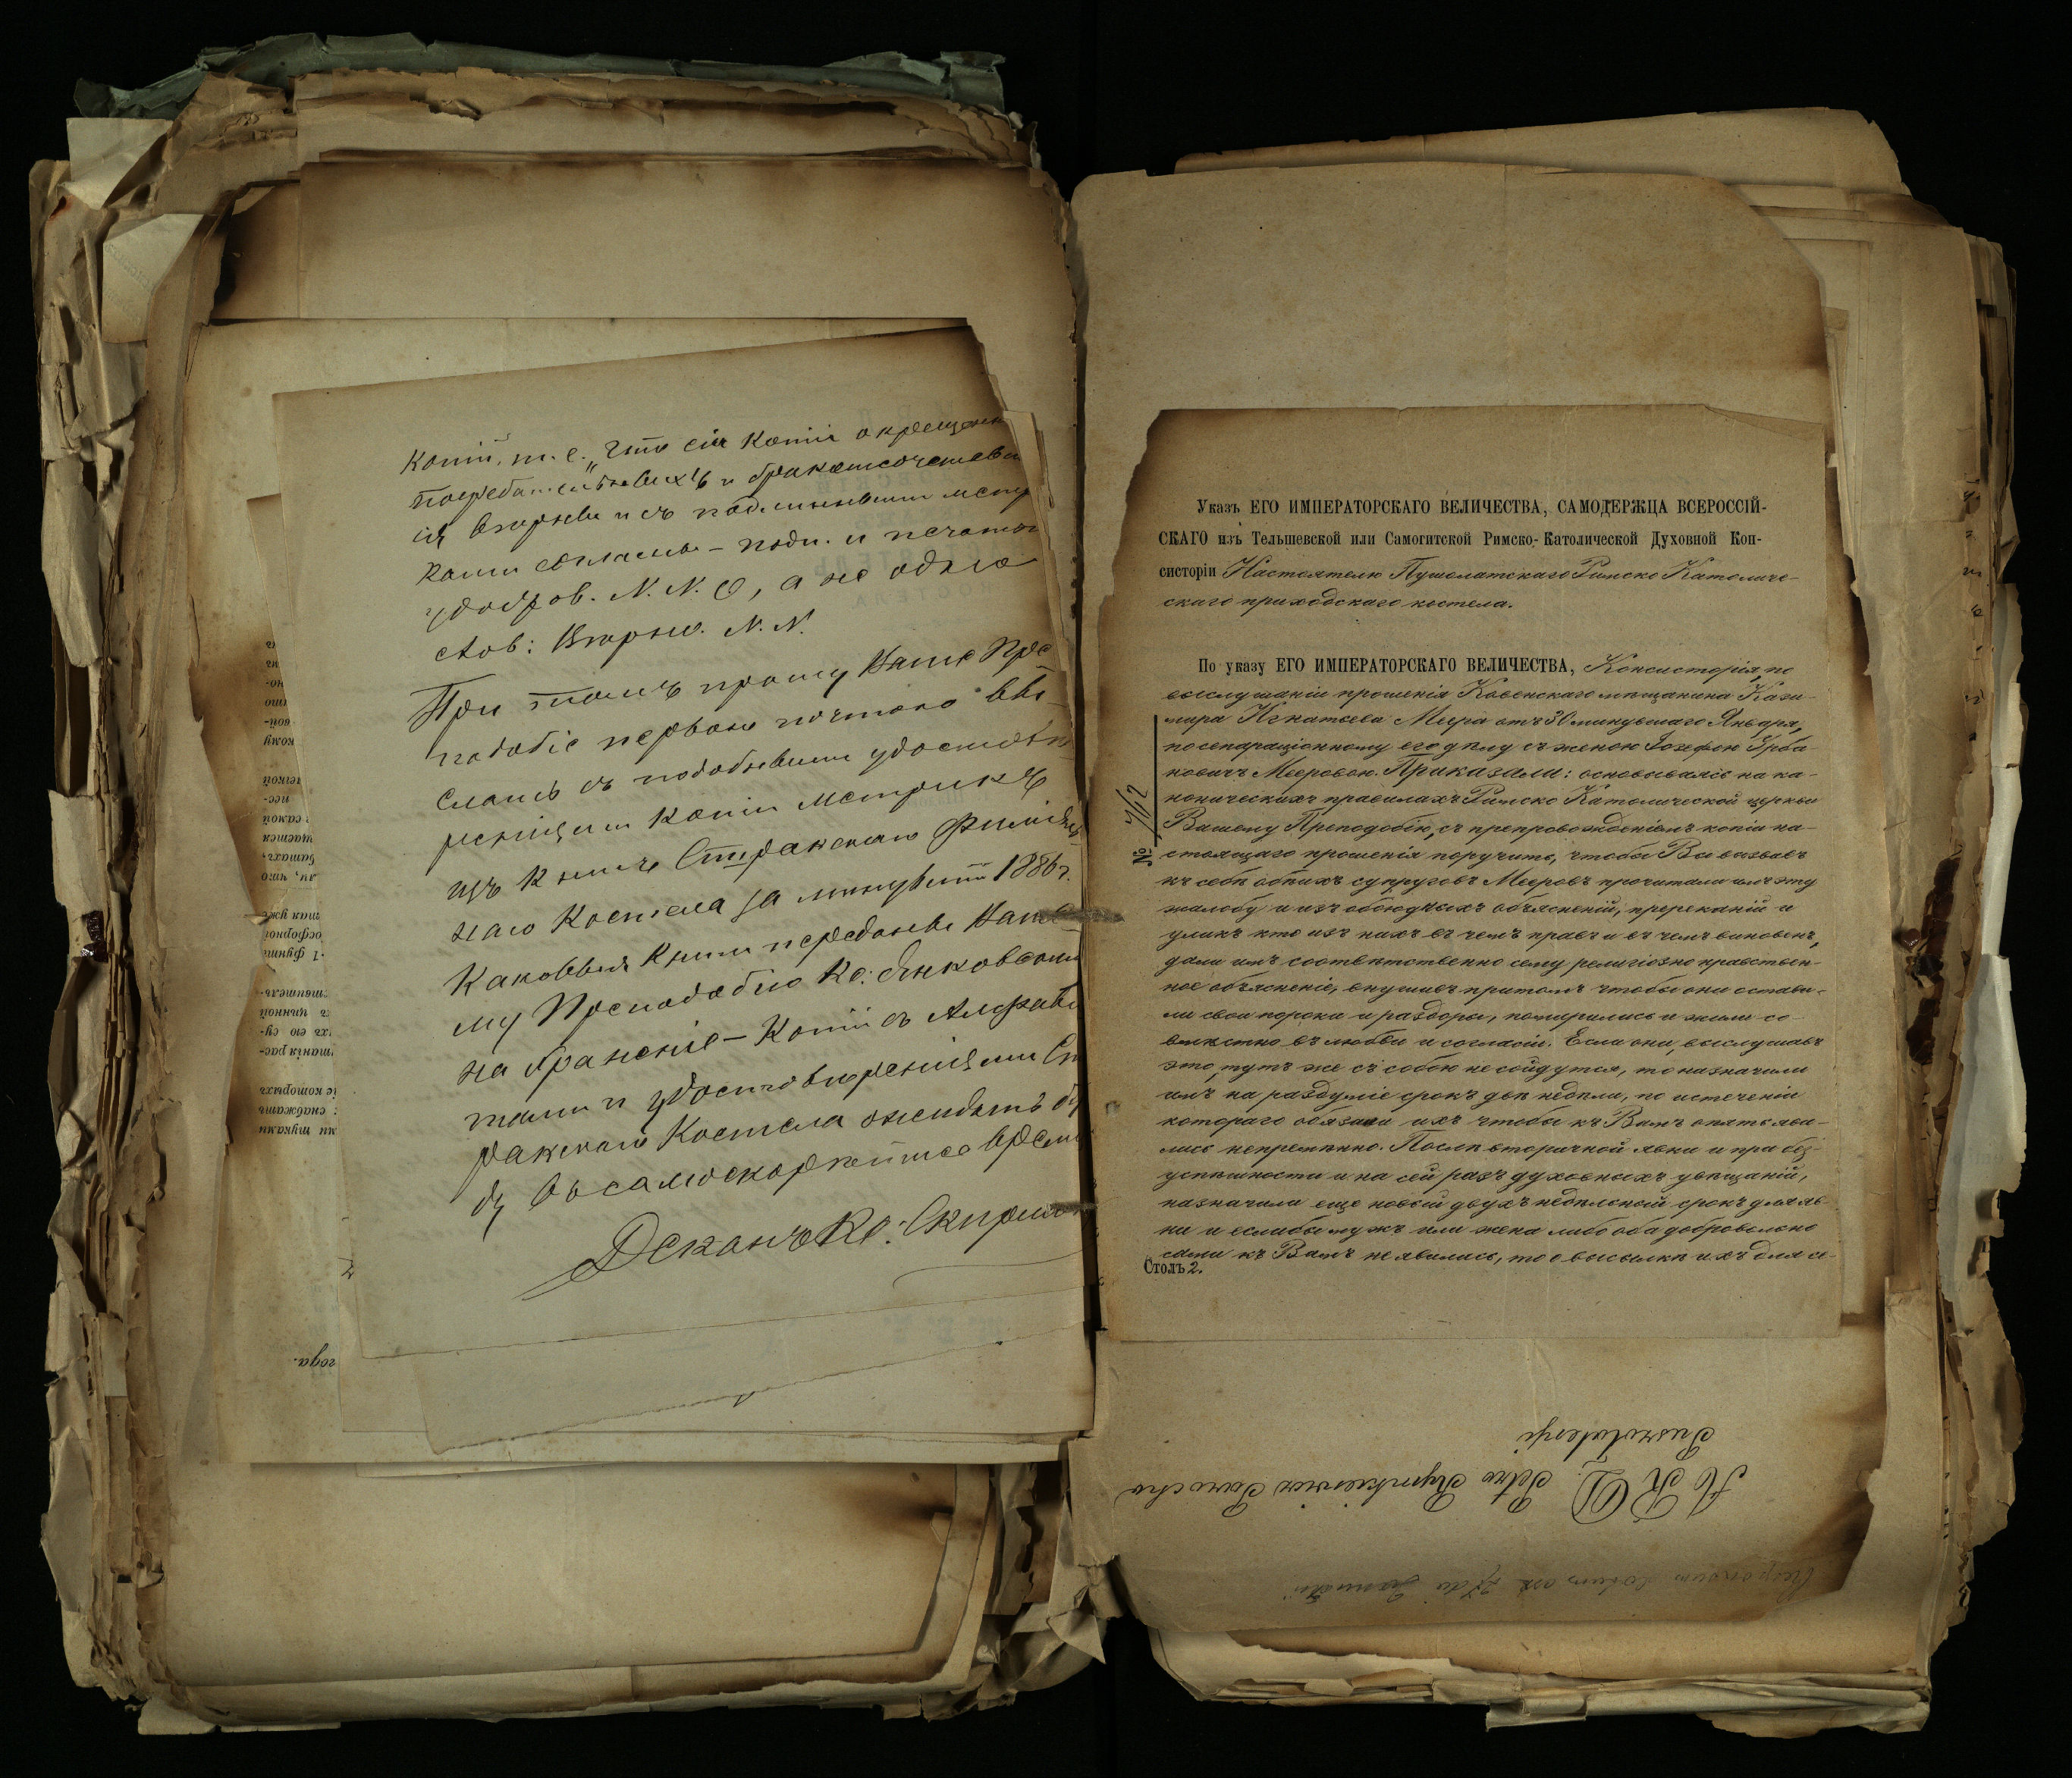 копій, т. е. „что сія копія о крещен
погребательныхъ и бракосочетав
ія вторыя и съ подлинными метр
ками согласны – подп. и печатью
удостов. N. N. О, а не одно
слов: Вторыя. N. N.
При этомъ прошу Ваше Пре
подобіе первою почтою вы-
слать съ подобными удостовѣ
реніями копіи метрикъ
изъ книгъ Страженаго Филіаль
наго костела за минувшій 1886 г.
Каковыя книги переданы Ваше
му Преподобію Кс: Янковскимъ
на храненіе – копіи съ Алфави
тами и удостовѣреніями Ст
раженаго Костела ожидать бу
ду въ самоскорѣйшее время
Деканъ Кс: Скирм
Указъ ЕГО ИМПЕРАТОРСКАГО ВЕЛИЧЕСТВА, САМОДЕРЖЦА ВСЕРОССІЙ-
СКАГО изъ Тельшевской или Самогитской Римско-Католической Духовной Кон-
систоріи Настоятелю Пушолатскаго Римско Католиче-
скаго приходскаго костела.
По указу ЕГО ИМПЕРАТОРСКАГО ВЕЛИЧЕСТВА, Консисторія, по
выслушаніи прошенія Ковенскаго мѣщанина Кази-
мира Игнатьева Меера отъ 30 минувшаго Января,
по сепараціонному его дѣлу съ женою Іозефою Урба-
новичъ Мееровою. Приказали: основываясь на ка-
ноническихъ правилахъ Римско Католической церкви
Вашему Преподобію, съ препровожденіемъ копіи на-
стоящаго прошенія поручить, чтобы Вы вызвавъ
къ себѣ обоихъ супруговъ Мееровъ прочитали имъ эту
жалобу и изъ обоюдныхъ объясненій, пререканій и
уликъ кто изъ нихъ въ чемъ правъ и въ чемъ виновенъ,
дали имъ соотвѣтственно сему религіозно нравствен-
ное объясненіе, внушивъ притомъ чтобы они остави-
ли свои пороки и раздоры, помирились и жили со-
вмѣстно въ любви и согласіи. Если они, выслушавъ
это, тутъ же съ собою не сойдутся, то назначили
имъ на раздуміе срокъ двѣ недѣли, по истеченіи
котораго обязали ихъ чтобы къ Вамъ опять яви-
лись непремѣнно. Послѣ вторичной явки и при без-
успѣшности и на сей разъ духовныхъ увѣщаній,
назначили еще новый двухъ недѣльный срокъ для яв-
ки и еслибы мужъ или жена либо оба добровольно
сами къ Вамъ не явились, то о высылкѣ ихъ для и-
Столъ 2.
№ 712
A R D. Petro Rymkiewicz Parocho
Puszolatensi
года.